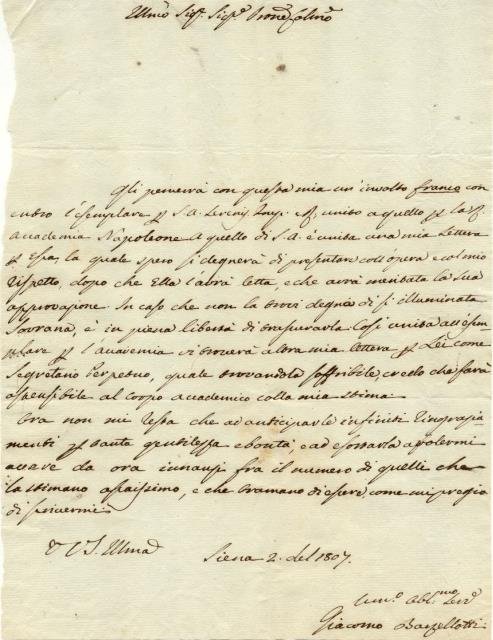 Illmo Sig. Sig. Prone Colmo
Gli perverrà con questa mia un' involto franco con
entro l'esemplare p S. A. Sereniss. Imp. R., unito a quello p la R.
Accademia Napoleone. A quello di S. A. è unita una mia lettera
p Essa, la quale spero si degnerà di presentare coll'opera e col mio
rispetto, dopo che Ella l'avrà letta, e che avrà meritata la sua
approvazione. In caso che non la trovi degna di sì illuminata
Sovrana, è in piena libertà di trascurarla. Così unita all'esem-
plare p l'accademia vi troverà altra mia lettera p Lei come
Segretario Perpetuo, quale trovandola soffribile, credo che sarà
ostensibile al corpo accademico colla mia stima.
Ora non mi resta che ad anticiparle infiniti ringrazia-
menti p tanta gentilezza e bontà; e ad esortarla a volermi
avere da ora innanzi fra il numero di quelli che
la stimano assaissimo, e che bramano di essere, come mi pregio
di scrivermi
Di V. S. Illma
Siena 2. del 1807.
Um.o Obbl.mo Serv.
Giacomo Barzellotti